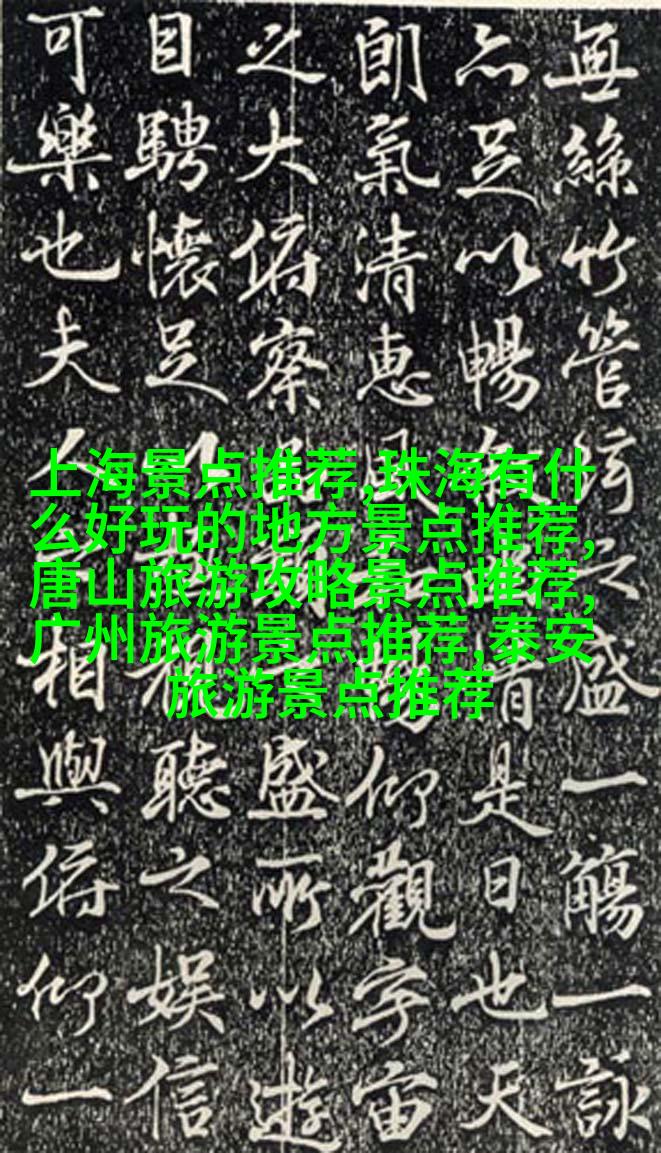 無絲竹管絃之盛一觴一詠
亦足以暢情是日也天
朗氣清惠風暢仰觀宇宙
之大俯察盛所以遊
目騁懷足以視聽之娱信
可樂也夫人相與俯仰一
上海景点推荐,珠海有什
么好玩的地方景点推荐,
唐山旅游攻略景点推荐,
广州旅游景点推荐,泰安
旅游景点推荐